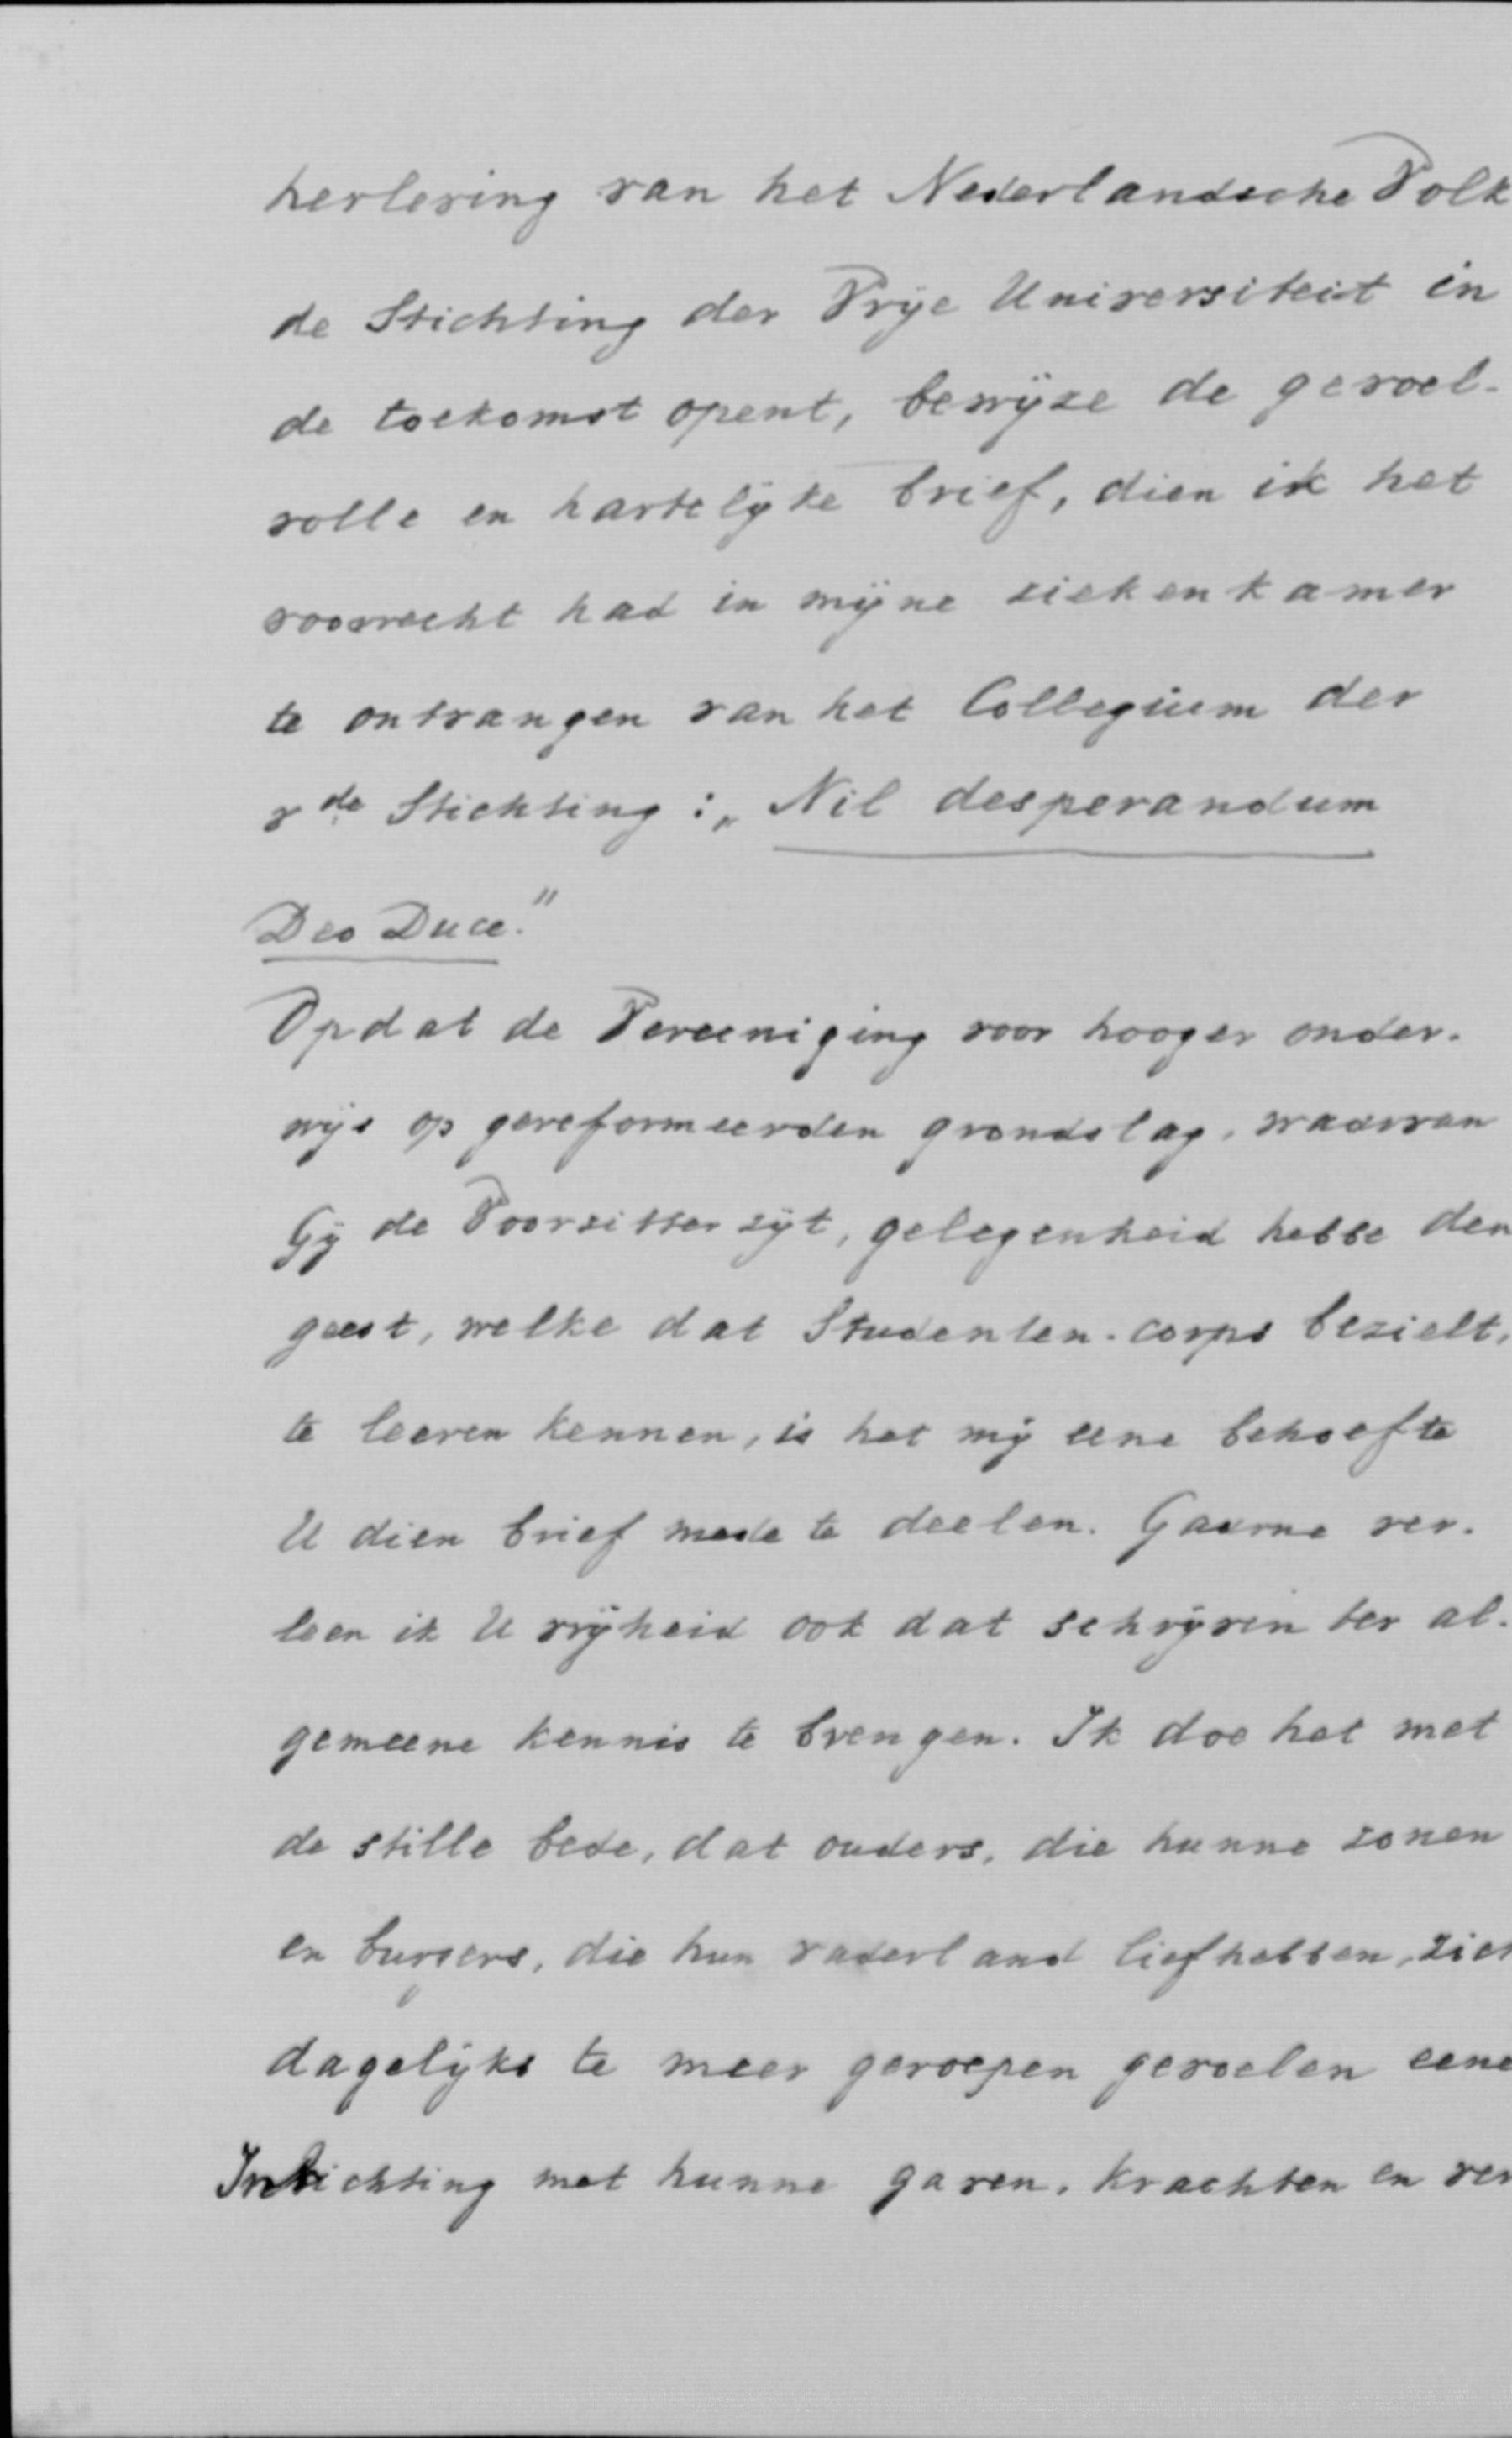 herleving van het Nederlandsche Volk
de Stichting der Vrije Universiteit in
de toekomst opent, bewijze de gevoel-
volle en hartelijke brief, dien ik het
voorrecht had in mijne ziekenkamer
te ontvangen van het Collegium der
v de Stichting: „Nil desperandum
Deo Duce."
Opdat de Vereeniging voor hooger onder-
wijs op gereformeerden grondslag, waarvan
Gij de Voorzitter zijt, gelegenheid hebbe den
geest, welke dat Studenten-corps bezielt,
te leeren kennen, is het mij eene behoefte
U dien brief mede te deelen. Gaarne ver-
leen ik U vrijheid ook dat schrijven ter al-
gemeene kennis te brengen. Ik doe het met
de stille bede, dat ouders, die hunne zonen
en burgers, die hun vaderland liefhebben, zich
dagelijks te meer geroepen gevoelen eene
Inrichting met hunne gaven, krachten en ver